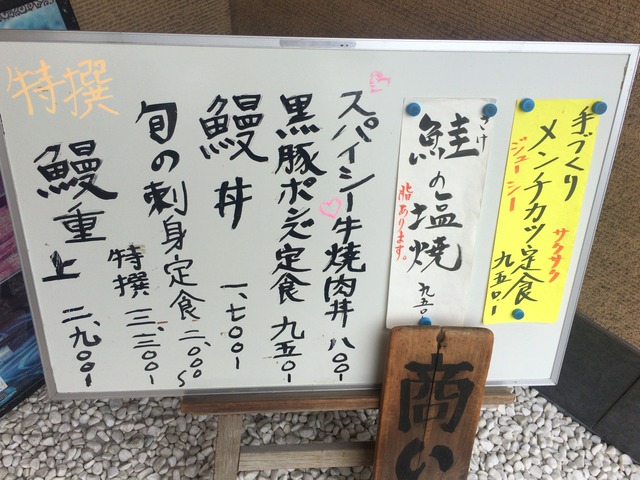 手づくり
メンチカツ定食
ジューシー
サクサク
九五〇-
さけ
鮭の塩焼
脂あります。
九五〇
スパイシー牛焼肉丼 八〇〇-
黒豚ポンズ定食 九五〇-
鰻丼 一、七〇〇-
旬の刺身定食 二、〇〇〇〜
特撰 三、三〇〇-
特撰
鰻重上 二、九〇〇-
商い